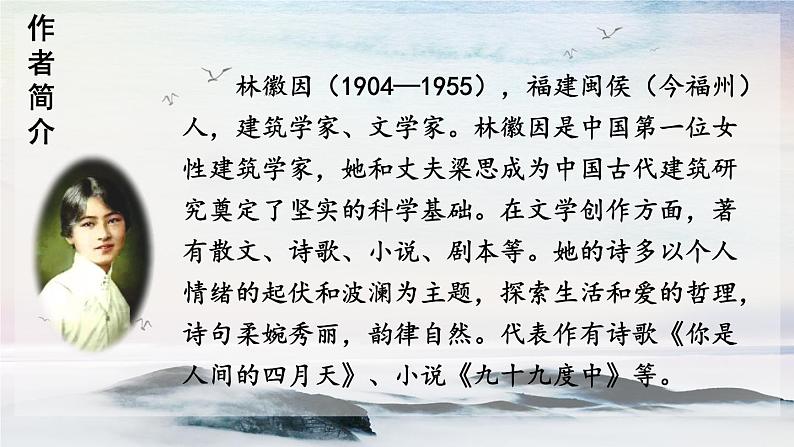 作者简介
林徽因（1904—1955），福建闽侯（今福州）
人，建筑学家、文学家。林徽因是中国第一位女
性建筑学家，她和丈夫梁思成为中国古代建筑研
究奠定了坚实的科学基础。在文学创作方面，著
有散文、诗歌、小说、剧本等。她的诗多以个人
情绪的起伏和波澜为主题，探索生活和爱的哲理，
诗句柔婉秀丽，韵律自然。代表作有诗歌《你是
人间的四月天》、小说《九十九度中》等。